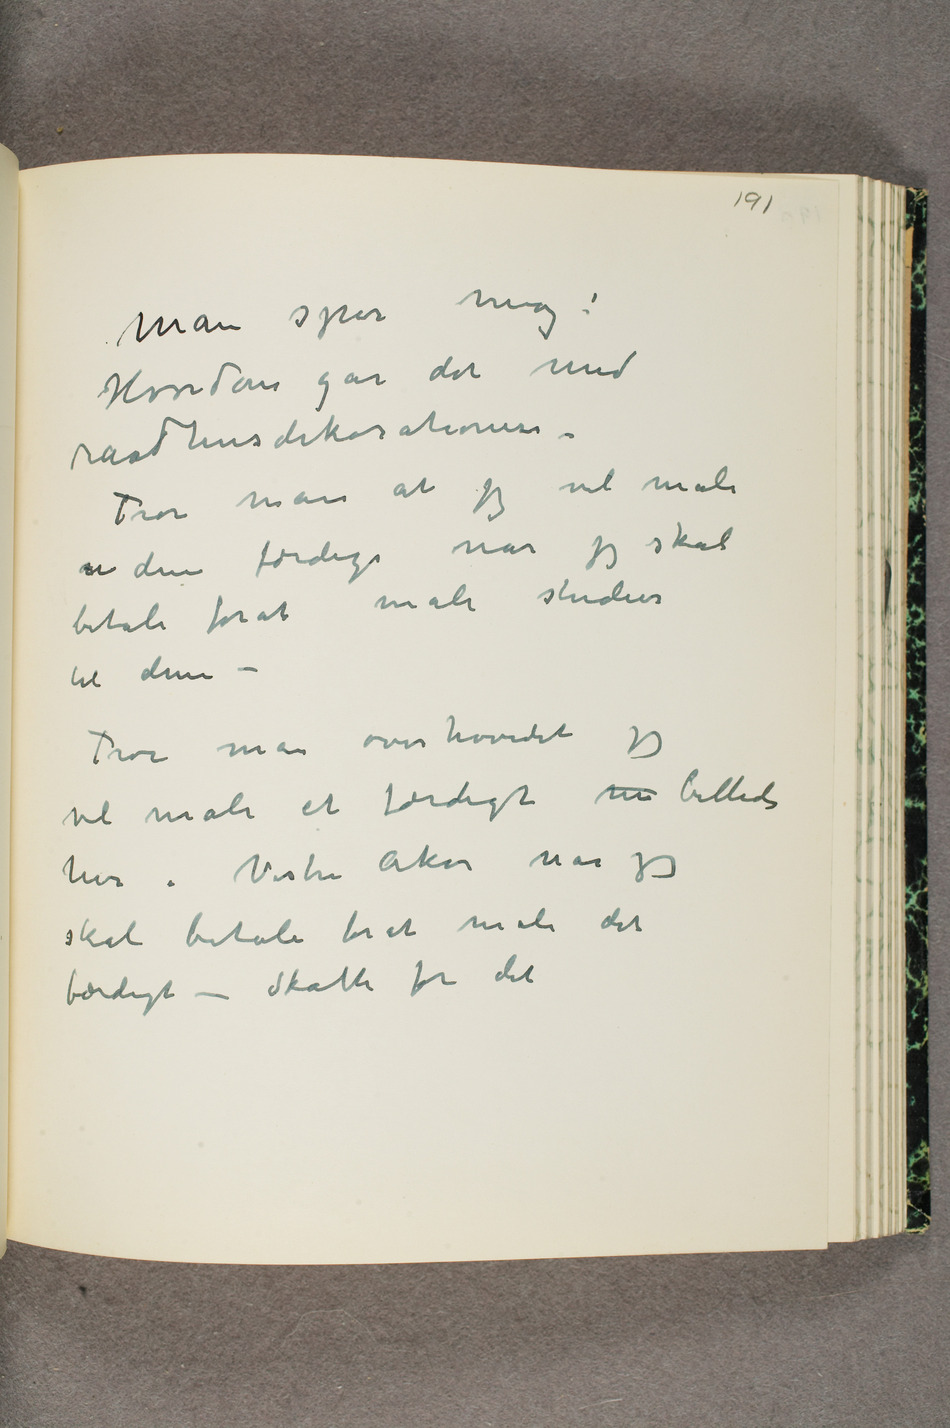 191
Man spør mig:
Hvordan går det med
raadhusdekorationene –
Tror man at jeg vil male
dem færdige når jeg skal
betale forat male studier
til dem –
Tror man overhovedet jeg
vil male et færdigt billede
her i Vestre Aker når jeg
skal betale forat male det
færdigt – Skatte for det